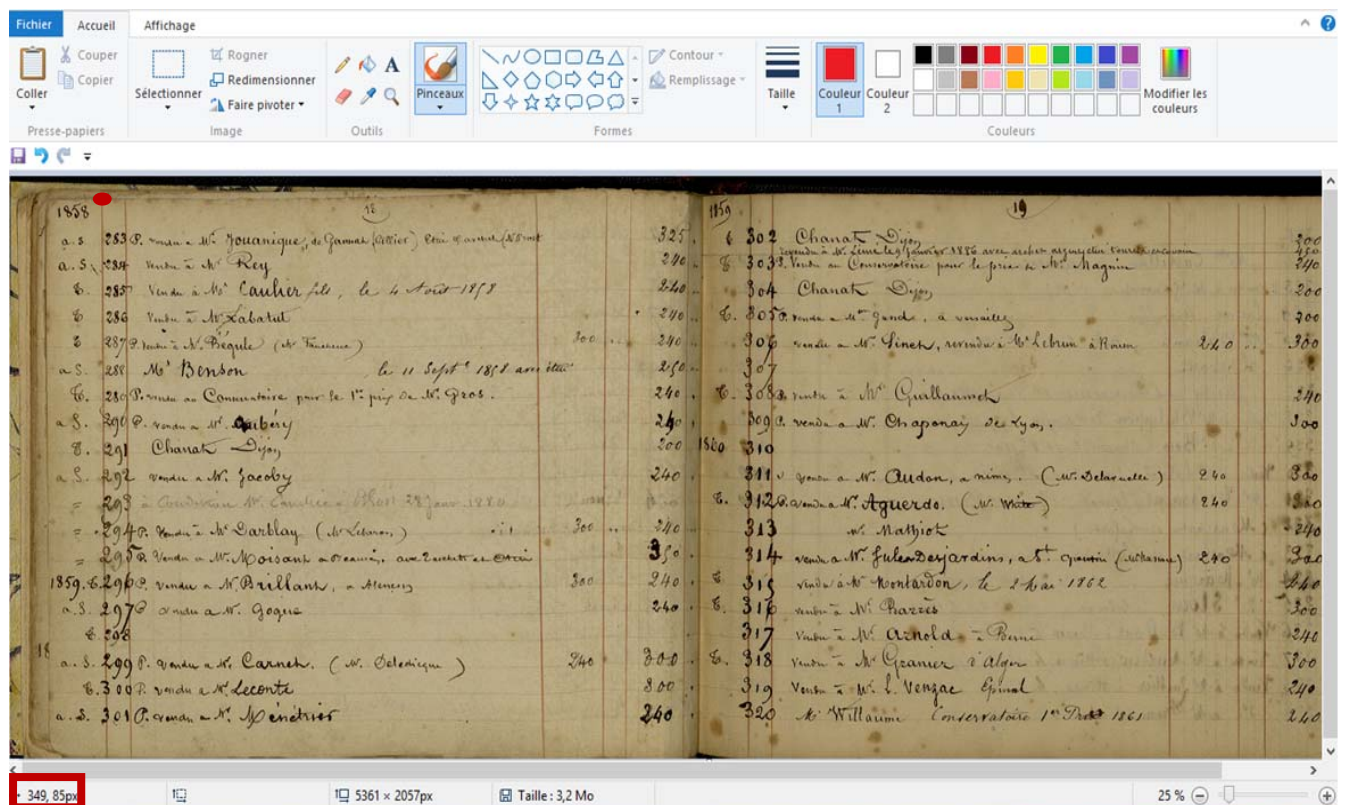 Fichier Accueil Affichage
Coller
Couper
Copier
Presse-papiers
Sélectionner
Rogner
Redimensionner
Faire pivoter
Image
A
Outils
Pinceaux
Contour
Remplissage
Formes
Taille
Couleur 1
Couleur 2
Modifier les couleurs
Couleurs
1858
18
a. S. 283 P. vendu a Mr. Jouanique, de Gannat (Allier) 325
a. S. 284 Vendu à Mr Rey 240
285 Vendu à Mr Caulier fils, le 4 Août 1858 240
286 Vendu à Mr Labatut 240
287 P. vendu a Mr. Bégule 300 240
a S. 288 Mr Benson le 11 Septe 1858 avec étui 250
289 P. vendu au Conservatoire pour le 1er prix de Mr. Gros. 240
a S. 290 P. vendu a Mr. 240
291 Chanat Dijon 200
a S. 292 vendu a Mr. Jacoby 240
= 293
= 294 P. Vendu a Mr Darblay (Mr Lebrun) 300 240
= 295 P. Vendu a Mr. Moisant a Beauvais, avec 350
1859. 296 P. vendu a Mr. Brillant, a Alençon 300 240
a. S. 297 P vendu a Mr. Gogue 240
298
18
a. S. 299 P. vendu a Mr. Carneh. 240 300
300 P. vendu a Mr. Leconte 300
a. S. 301 P. vendu a Mr. Ménétrier 240
1859
19
302 Chanat Dijon 200
303 P. Vendu au Conservatoire pour le prix de Mr. Magnin 240
304 Chanat Dijon 200
305 P. vendu a Mr Gand, a versailles 200
306 vendu a Mr. Sinet, revendu à Mr Lebrun à Rouen 240 300
307
308 P. vendu a Mr Guillaumet 240
309 P. vendu a Mr. Chaponay de Lyon. 300
1860 310
311 vendu a Mr. Audon, a nimes. (Mr. Delaruelle) 240 300
312 P. vendu a Mr. Aguerdo. (Mr. White) 240 300
313 Mr. Mathiot 240
314 vendu a Mr Jules Desjardins, a St quentin 240 300
315 vendu à Mr Montardon, le 2 Mai 1862 240
316 vendu à Mr Charrès 300
317 Vendu à Mr Arnold à Berne 240
318 vendu à Mr Granier d'Alger 300
319 Vendu à Mr. L. Venzac Epinal 240
320 Mr Willaume Conservatoire 1er Prix 1861 240
349, 85px
5361 × 2057px
Taille : 3,2 Mo
25 %